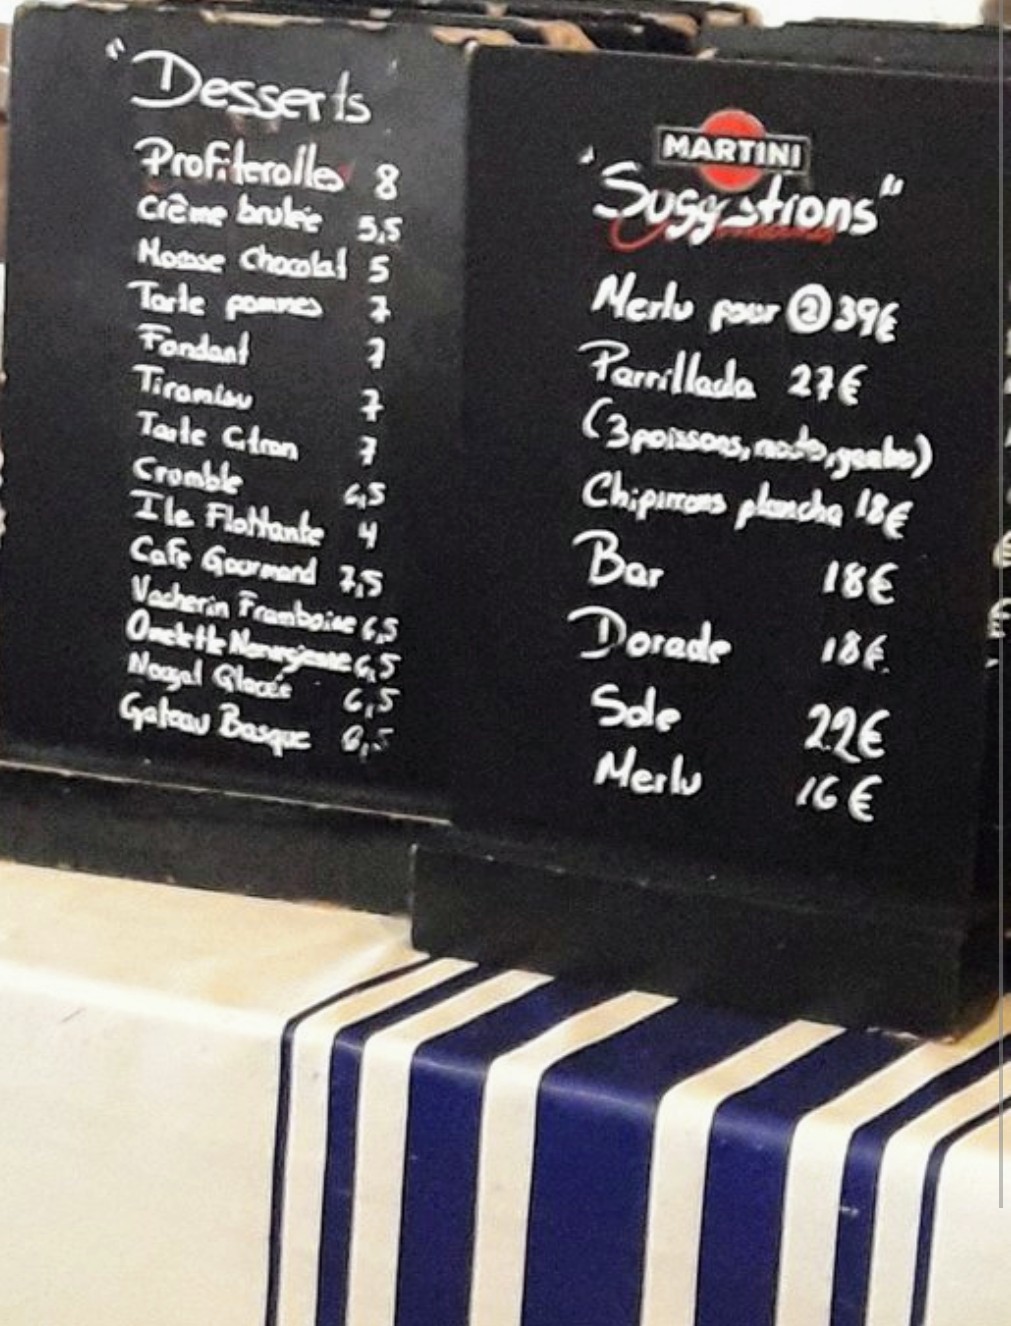 "Desserts
Profiterolles 8
Crème brulée 5,5
Mousse Chocolat 5
Tarte pommes 7
Fondant 7
Tiramisu 7
Tarte Citron 7
Crumble 6,5
Ile Flottante 4
Café Gourmand 7,5
Vacherin Framboise 6,5
Omelette Norvegienne 6,5
Nougat Glacée 6,5
Gateau Basque 6,5
MARTINI
"Suggestions"
Merlu pour 2 39€
Parrillada 27€
(3 poissons,
Chipirons plancha 18€
Bar 18€
Dorade 18€
Sole 22€
Merlu 16€